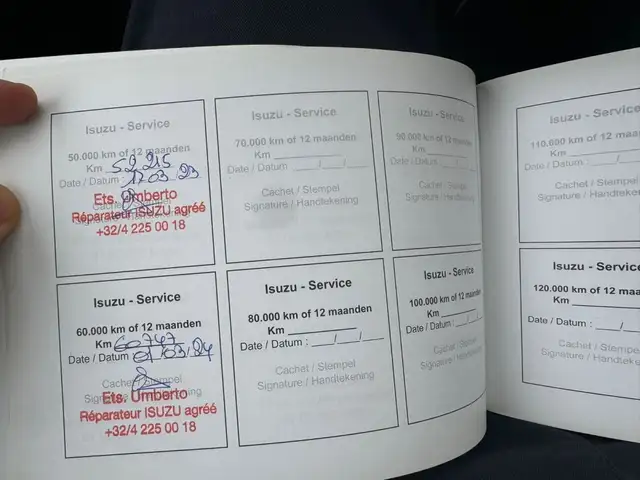 Isuzu - Service
50.000 km of 12 maanden
Km 52 215
Date / Datum : 17 03 23
Cachet / Stempel
Ets. Umberto
Signature / Handtekening
Réparateur ISUZU agréé
+32/4 225 00 18
Isuzu - Service
60.000 km of 12 maanden
Km 60747
Date / Datum 01 03 24
Cachet / Stempel
Ets. Umberto
Signature / Handtekening
Réparateur ISUZU agréé
+32/4 225 00 18
Isuzu - Service
70.000 km of 12 maanden
Km
Date / Datum : __/__/__
Cachet / Stempel
Signature / Handtekening
Isuzu - Service
80.000 km of 12 maanden
Km
Date / Datum : __/__/__
Cachet / Stempel
Signature / Handtekening
Isuzu - Service
90.000 km of 12 maanden
Km
Date / Datum : __/__/__
Cachet / Stempel
Signature / Handtekening
Isuzu - Service
100.000 km of 12 maanden
Km
Date / Datum : __/__/__
Cachet / Stempel
Signature / Handtekening
Isuzu - Service
110.000 km of 12 maa
Km
Date / Datum :
Cachet / Stempel
Signature / Handteken
Isuzu - Service
120.000 km of 12 maa
Km
Date / Datum :
Cachet / Stempel
Signature / Handteken